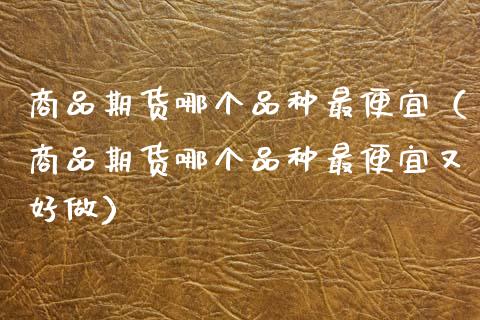 商品期货哪个品种最便宜（
商品期货哪个品种最便宜又
好做）